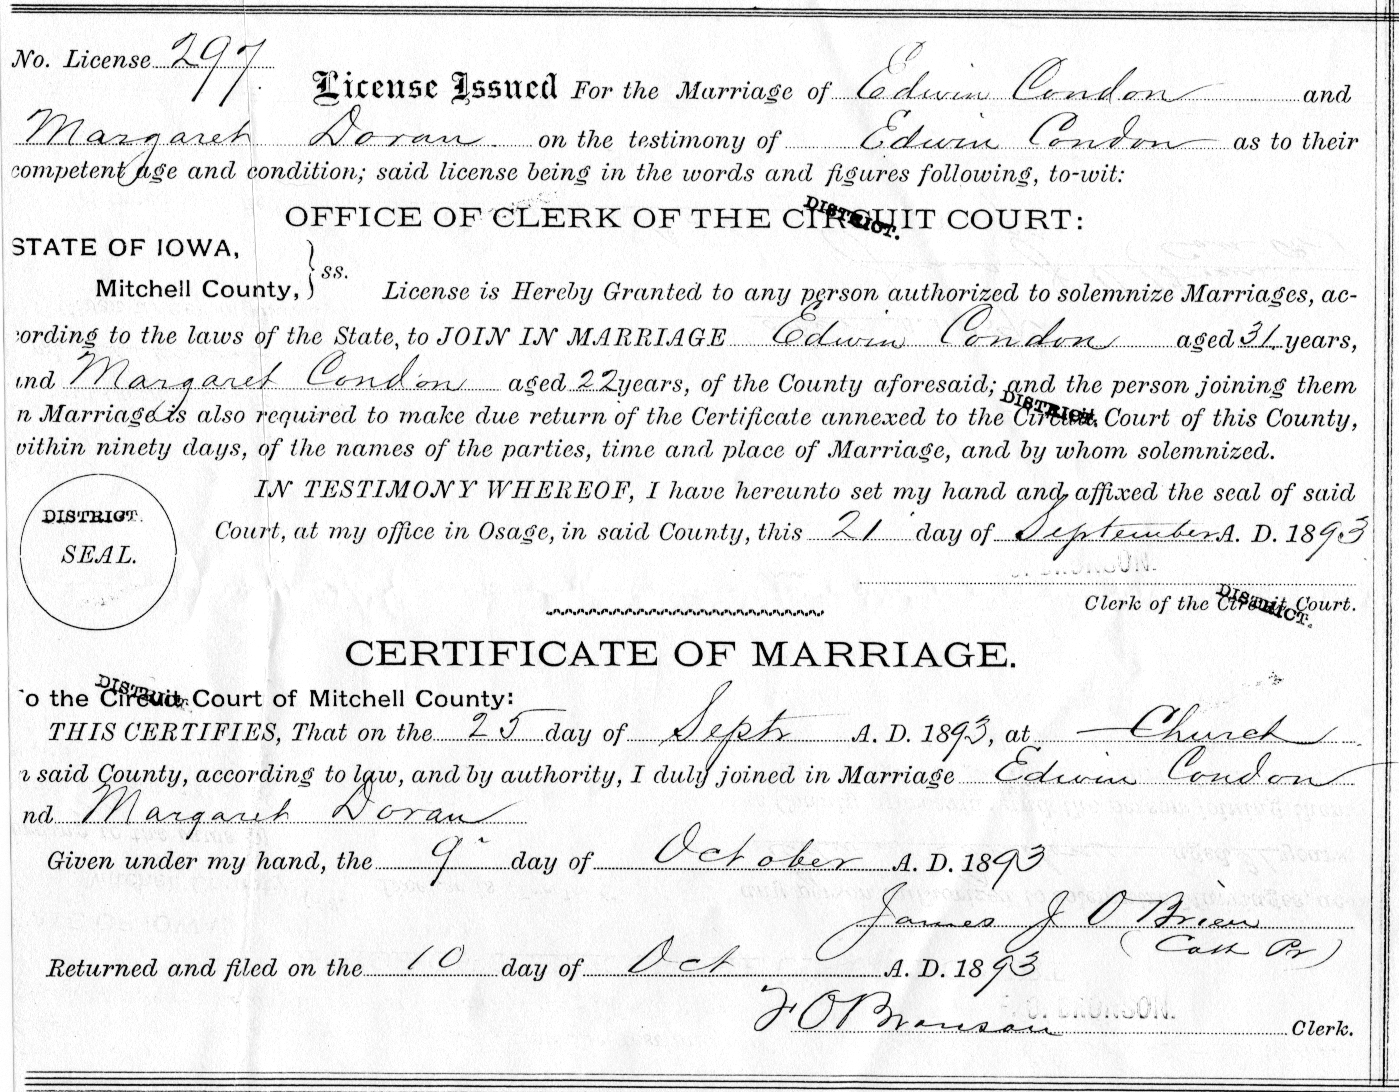 No. License 297
License Issued For the Marriage of Edwin Condon and
Margaret Doran on the testimony of Edwin Condon as to their
competent age and condition; said license being in the words and figures following, to-wit:
DISTRICT.
OFFICE OF CLERK OF THE CIRCUIT COURT:
STATE OF IOWA,
Mitchell County, } ss. License is Hereby Granted to any person authorized to solemnize Marriages, ac-
cording to the laws of the State, to JOIN IN MARRIAGE Edwin Condon aged 31 years,
and Margaret Condon aged 22 years, of the County aforesaid; and the person joining them
DISTRICT.
n Marriage is also required to make due return of the Certificate annexed to the Circuit Court of this County,
within ninety days, of the names of the parties, time and place of Marriage, and by whom solemnized.
IN TESTIMONY WHEREOF, I have hereunto set my hand and affixed the seal of said
Court, at my office in Osage, in said County, this 21 day of September A. D. 1893
DISTRICT.
SEAL.
DISTRICT.
Clerk of the Circuit Court.
CERTIFICATE OF MARRIAGE.
DISTRICT.
To the Circuit Court of Mitchell County:
THIS CERTIFIES, That on the 25 day of Septr A. D. 1893, at Church
n said County, according to law, and by authority, I duly joined in Marriage Edwin Condon
nd Margaret Doran
Given under my hand, the 9" day of October A. D. 1893
James J O Brien
(Cath Pr)
Returned and filed on the 10 day of Oct A. D. 1893
F. O. BRONSON.
F O Bronson Clerk.